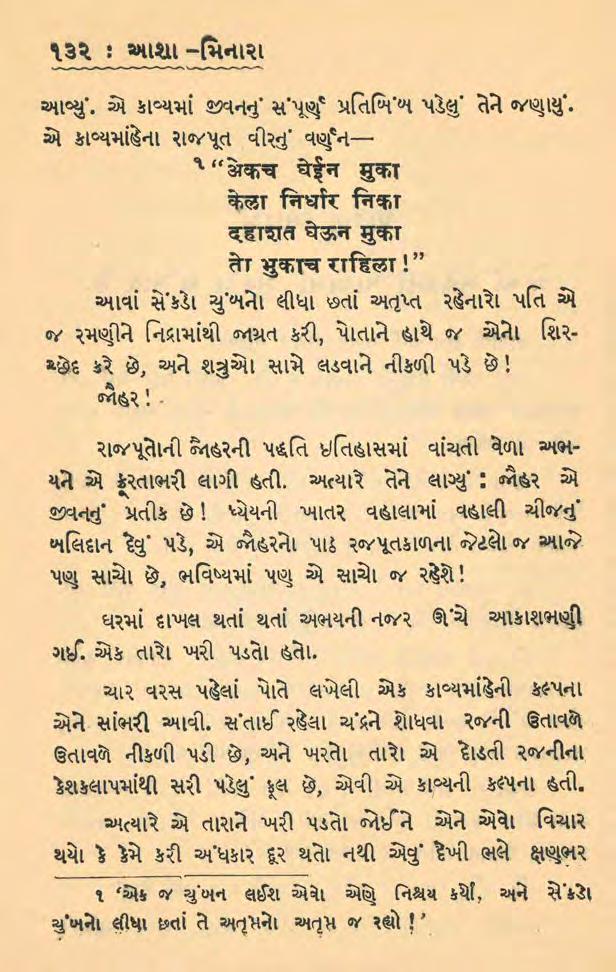 ૧૩૨ : આશા-મિનારા
આવ્યું. એ કાવ્યમાં જીવનનું સંપૂર્ણ પ્રતિબિંબ પડેલું તેને જણાયું.
એ કાવ્યમાંહેના રાજપૂત વીરનું વર્ણન—
૧ “अेकच घेईन मुका
केला निर्धार निका
दहाशत घेऊन मुका
तो भुकाच राहिला !”
આવાં સેંકડો ચુંબનો લીધા છતાં અતૃપ્ત રહેનારો પતિ એ
જ રમણીને નિદ્રામાંથી જાગ્રત કરી, પોતાને હાથે જ એનો શિર-
ચ્છેદ કરે છે, અને શત્રુઓ સામે લડવાને નીકળી પડે છે !
જૌહર !
રાજપૂતોની જૌહરની પદ્ધતિ ઇતિહાસમાં વાંચતી વેળા અભ-
યને એ ક્રૂરતાભરી લાગી હતી. અત્યારે તેને લાગ્યું : જૌહર એ
જીવનનું પ્રતીક છે ! ધ્યેયની ખાતર વહાલામાં વહાલી ચીજનું
બલિદાન દેવું પડે, એ જૌહરનો પાઠ રજપૂતકાળના જેટલો જ આજે
પણ સાચો છે, ભવિષ્યમાં પણ એ સાચો જ રહેશે !
ઘરમાં દાખલ થતાં થતાં અભયની નજર ઊંચે આકાશભણી
ગઈ. એક તારો ખરી પડતો હતો.
ચાર વરસ પહેલાં પોતે લખેલી એક કાવ્યમાંહેની કલ્પના
એને સાંભરી આવી. સંતાઈ રહેલા ચંદ્રને શોધવા રજની ઉતાવળે
ઉતાવળે નીકળી પડી છે, અને ખરતો તારો એ દોડતી રજનીના
કેશકલાપમાંથી સરી પડેલું ફૂલ છે, એવી એ કાવ્યની કલ્પના હતી.
અત્યારે એ તારાને ખરી પડતો જોઈને એને એવો વિચાર
થયો કે કેમે કરી અંધકાર દૂર થતો નથી એવું દેખી ભલે ક્ષણભર
૧ ‘એક જ ચુંબન લઈશ એવો એણે નિશ્ચય કર્યો, અને સેંકડો
ચુંબનો લીધા છતાં તે અતૃપ્તનો અતૃપ્ત જ રહ્યો !’